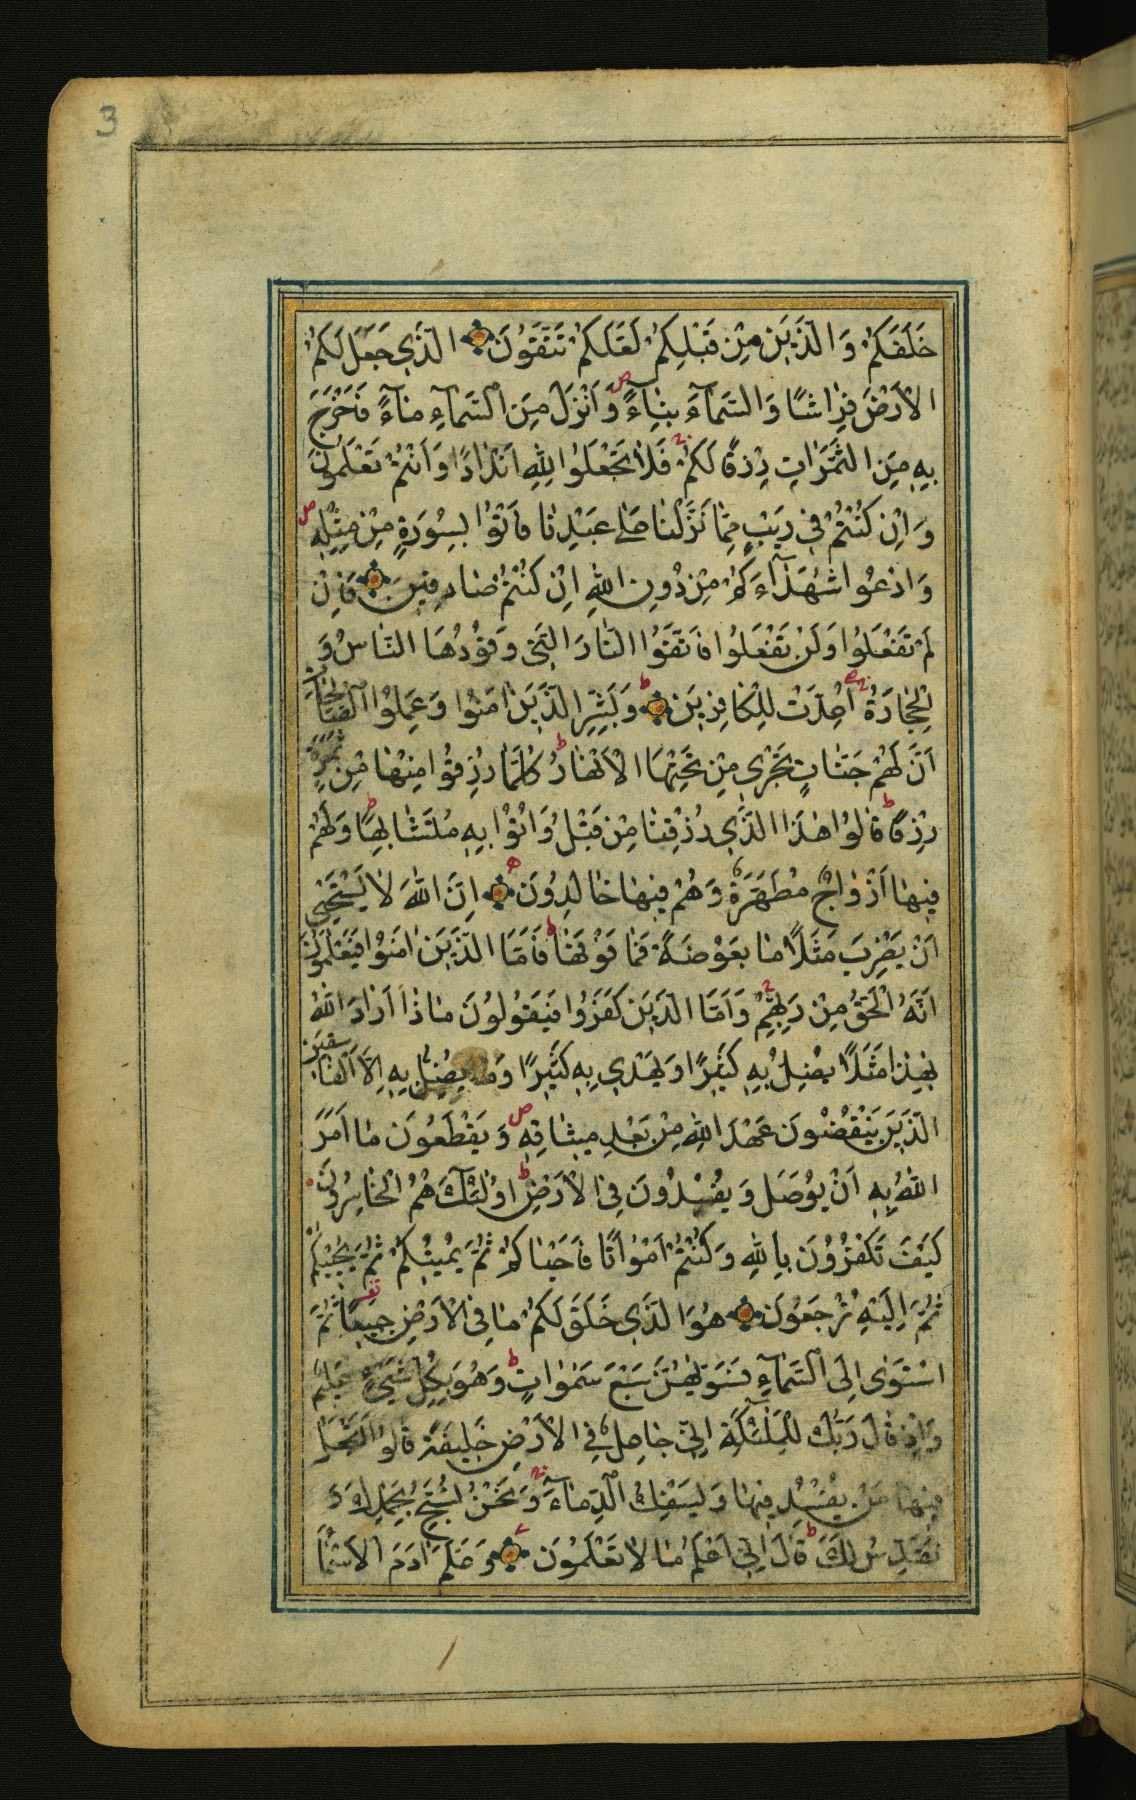 3
خَلَقَكُمْ وَالَّذِينَ مِنْ قَبْلِكُمْ لَعَلَّكُمْ تَتَّقُونَ الَّذِي جَعَلَ لَكُمُ
الْأَرْضَ فِرَاشًا وَالسَّمَآءَ بِنَآءً ص وَاَنْزَلَ مِنَ السَّمَآءِ مَآءً فَاَخْرَجَ
بِهِ مِنَ الثَّمَرَاتِ رِزْقًا لَكُمْ ج فَلَا تَجْعَلُوا لِلّٰهِ اَنْدَادًا وَاَنْتُمْ تَعْلَمُونَ
وَاِنْ كُنْتُمْ فِي رَيْبٍ مِمَّا نَزَّلْنَا عَلٰى عَبْدِنَا فَأْتُوا بِسُورَةٍ مِنْ مِثْلِهِ ص
وَادْعُوا شُهَدَآءَكُمْ مِنْ دُونِ اللّٰهِ اِنْ كُنْتُمْ صَادِقِينَ فَاِنْ
لَمْ تَفْعَلُوا وَلَنْ تَفْعَلُوا فَاتَّقُوا النَّارَ الَّتِي وَقُودُهَا النَّاسُ وَ
الْحِجَارَةُ اُعِدَّتْ لِلْكَافِرِينَ ط وَبَشِّرِ الَّذِينَ اٰمَنُوا وَعَمِلُوا الصَّالِحَاتِ
اَنَّ لَهُمْ جَنَّاتٍ تَجْرِي مِنْ تَحْتِهَا الْاَنْهَارُ ط كُلَّمَا رُزِقُوا مِنْهَا مِنْ ثَمَرَةٍ
رِزْقًا ط قَالُوا هٰذَا الَّذِي رُزِقْنَا مِنْ قَبْلُ وَاُتُوا بِهِ مُتَشَابِهًا ط وَلَهُمْ
فِيهَا اَزْوَاجٌ مُطَهَّرَةٌ وَهُمْ فِيهَا خَالِدُونَ اِنَّ اللّٰهَ لَا يَسْتَحْيِي
اَنْ يَضْرِبَ مَثَلًا مَا بَعُوضَةً فَمَا فَوْقَهَا ط فَاَمَّا الَّذِينَ اٰمَنُوا فَيَعْلَمُونَ
اَنَّهُ الْحَقُّ مِنْ رَبِّهِمْ ج وَاَمَّا الَّذِينَ كَفَرُوا فَيَقُولُونَ مَاذَا اَرَادَ اللّٰهُ
بِهٰذَا مَثَلًا يُضِلُّ بِهِ كَثِيرًا وَيَهْدِي بِهِ كَثِيرًا وَمَا يُضِلُّ بِهِ اِلَّا الْفَاسِقِينَ
الَّذِينَ يَنْقُضُونَ عَهْدَ اللّٰهِ مِنْ بَعْدِ مِيثَاقِهِ ص وَيَقْطَعُونَ مَا اَمَرَ
اللّٰهُ بِهِ اَنْ يُوصَلَ وَيُفْسِدُونَ فِي الْاَرْضِ ط اُولٰٓئِكَ هُمُ الْخَاسِرُونَ
كَيْفَ تَكْفُرُونَ بِاللّٰهِ وَكُنْتُمْ اَمْوَاتًا فَاَحْيَاكُمْ ثُمَّ يُمِيتُكُمْ ثُمَّ يُحْيِيكُمْ
ثُمَّ اِلَيْهِ تُرْجَعُونَ هُوَ الَّذِي خَلَقَ لَكُمْ مَا فِي الْاَرْضِ جَمِيعًا ثُمَّ
اسْتَوٰى اِلَى السَّمَآءِ فَسَوّٰيهُنَّ سَبْعَ سَمٰوَاتٍ ط وَهُوَ بِكُلِّ شَيْءٍ عَلِيمٌ
وَاِذْ قَالَ رَبُّكَ لِلْمَلٰٓئِكَةِ اِنِّي جَاعِلٌ فِي الْاَرْضِ خَلِيفَةً قَالُوا اَتَجْعَلُ
فِيهَا مَنْ يُفْسِدُ فِيهَا وَيَسْفِكُ الدِّمَآءَ ج وَنَحْنُ نُسَبِّحُ بِحَمْدِكَ وَ
نُقَدِّسُ لَكَ ط قَالَ اِنِّي اَعْلَمُ مَا لَا تَعْلَمُونَ وَعَلَّمَ اٰدَمَ الْاَسْمَآءَ